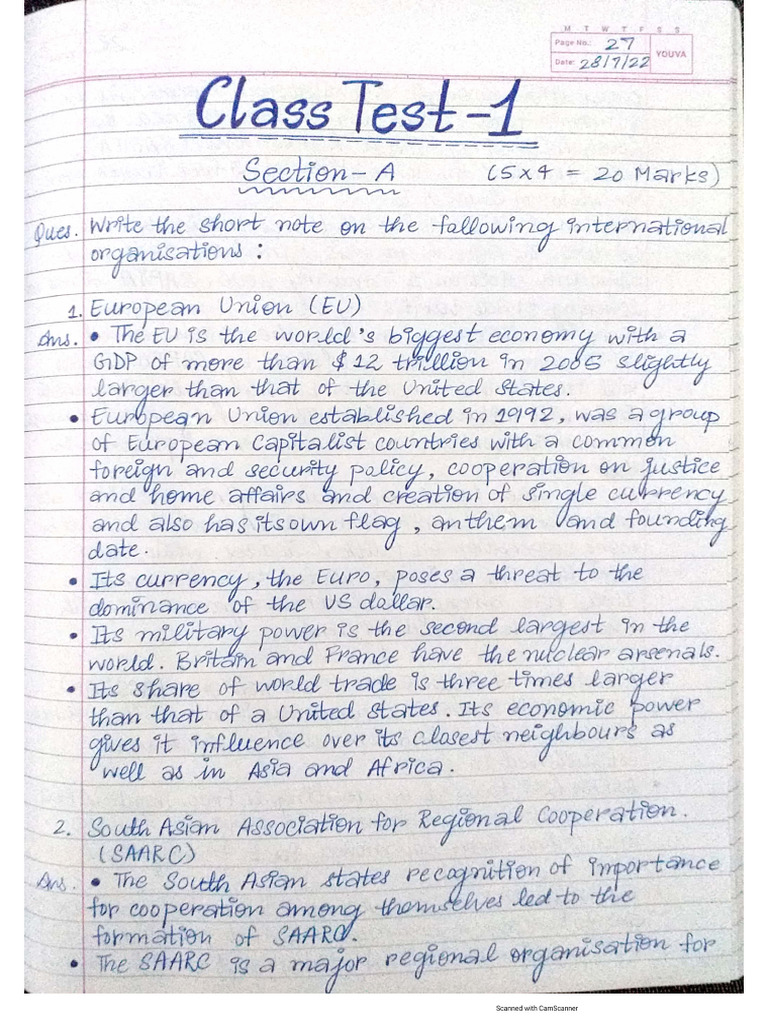 M T W T F S S
Page No.: 27
YOUVA
Date: 28/7/22
Class Test-1
Section-A (5x4 = 20 Marks)
Ques. Write the short note on the following international
organisations :
1. European Union (EU)
Ans. • The EU is the world's biggest economy with a
GDP of more than $ 12 trillion in 2005 slightly
larger than that of the United States.
• European Union established in 1992, was a group
of European Capitalist countries with a common
foreign and security policy, cooperation on justice
and home affairs and creation of single currency
and also has its own flag, anthem and founding
date.
• Its currency, the Euro, poses a threat to the
dominance of the US dollar.
• Its military power is the second largest in the
world. Britain and France have the nuclear arsenals.
• Its share of world trade is three times larger
than that of a United States. Its economic power
gives it influence over its closest neighbours as
well as in Asia and Africa.
2. South Asian Association for Regional Cooperation.
(SAARC)
Ans. • The South Asian states recognition of importance
for cooperation among themselves led to the
formation of SAARC.
• The SAARC is a major regional organisation for
Scanned with CamScanner